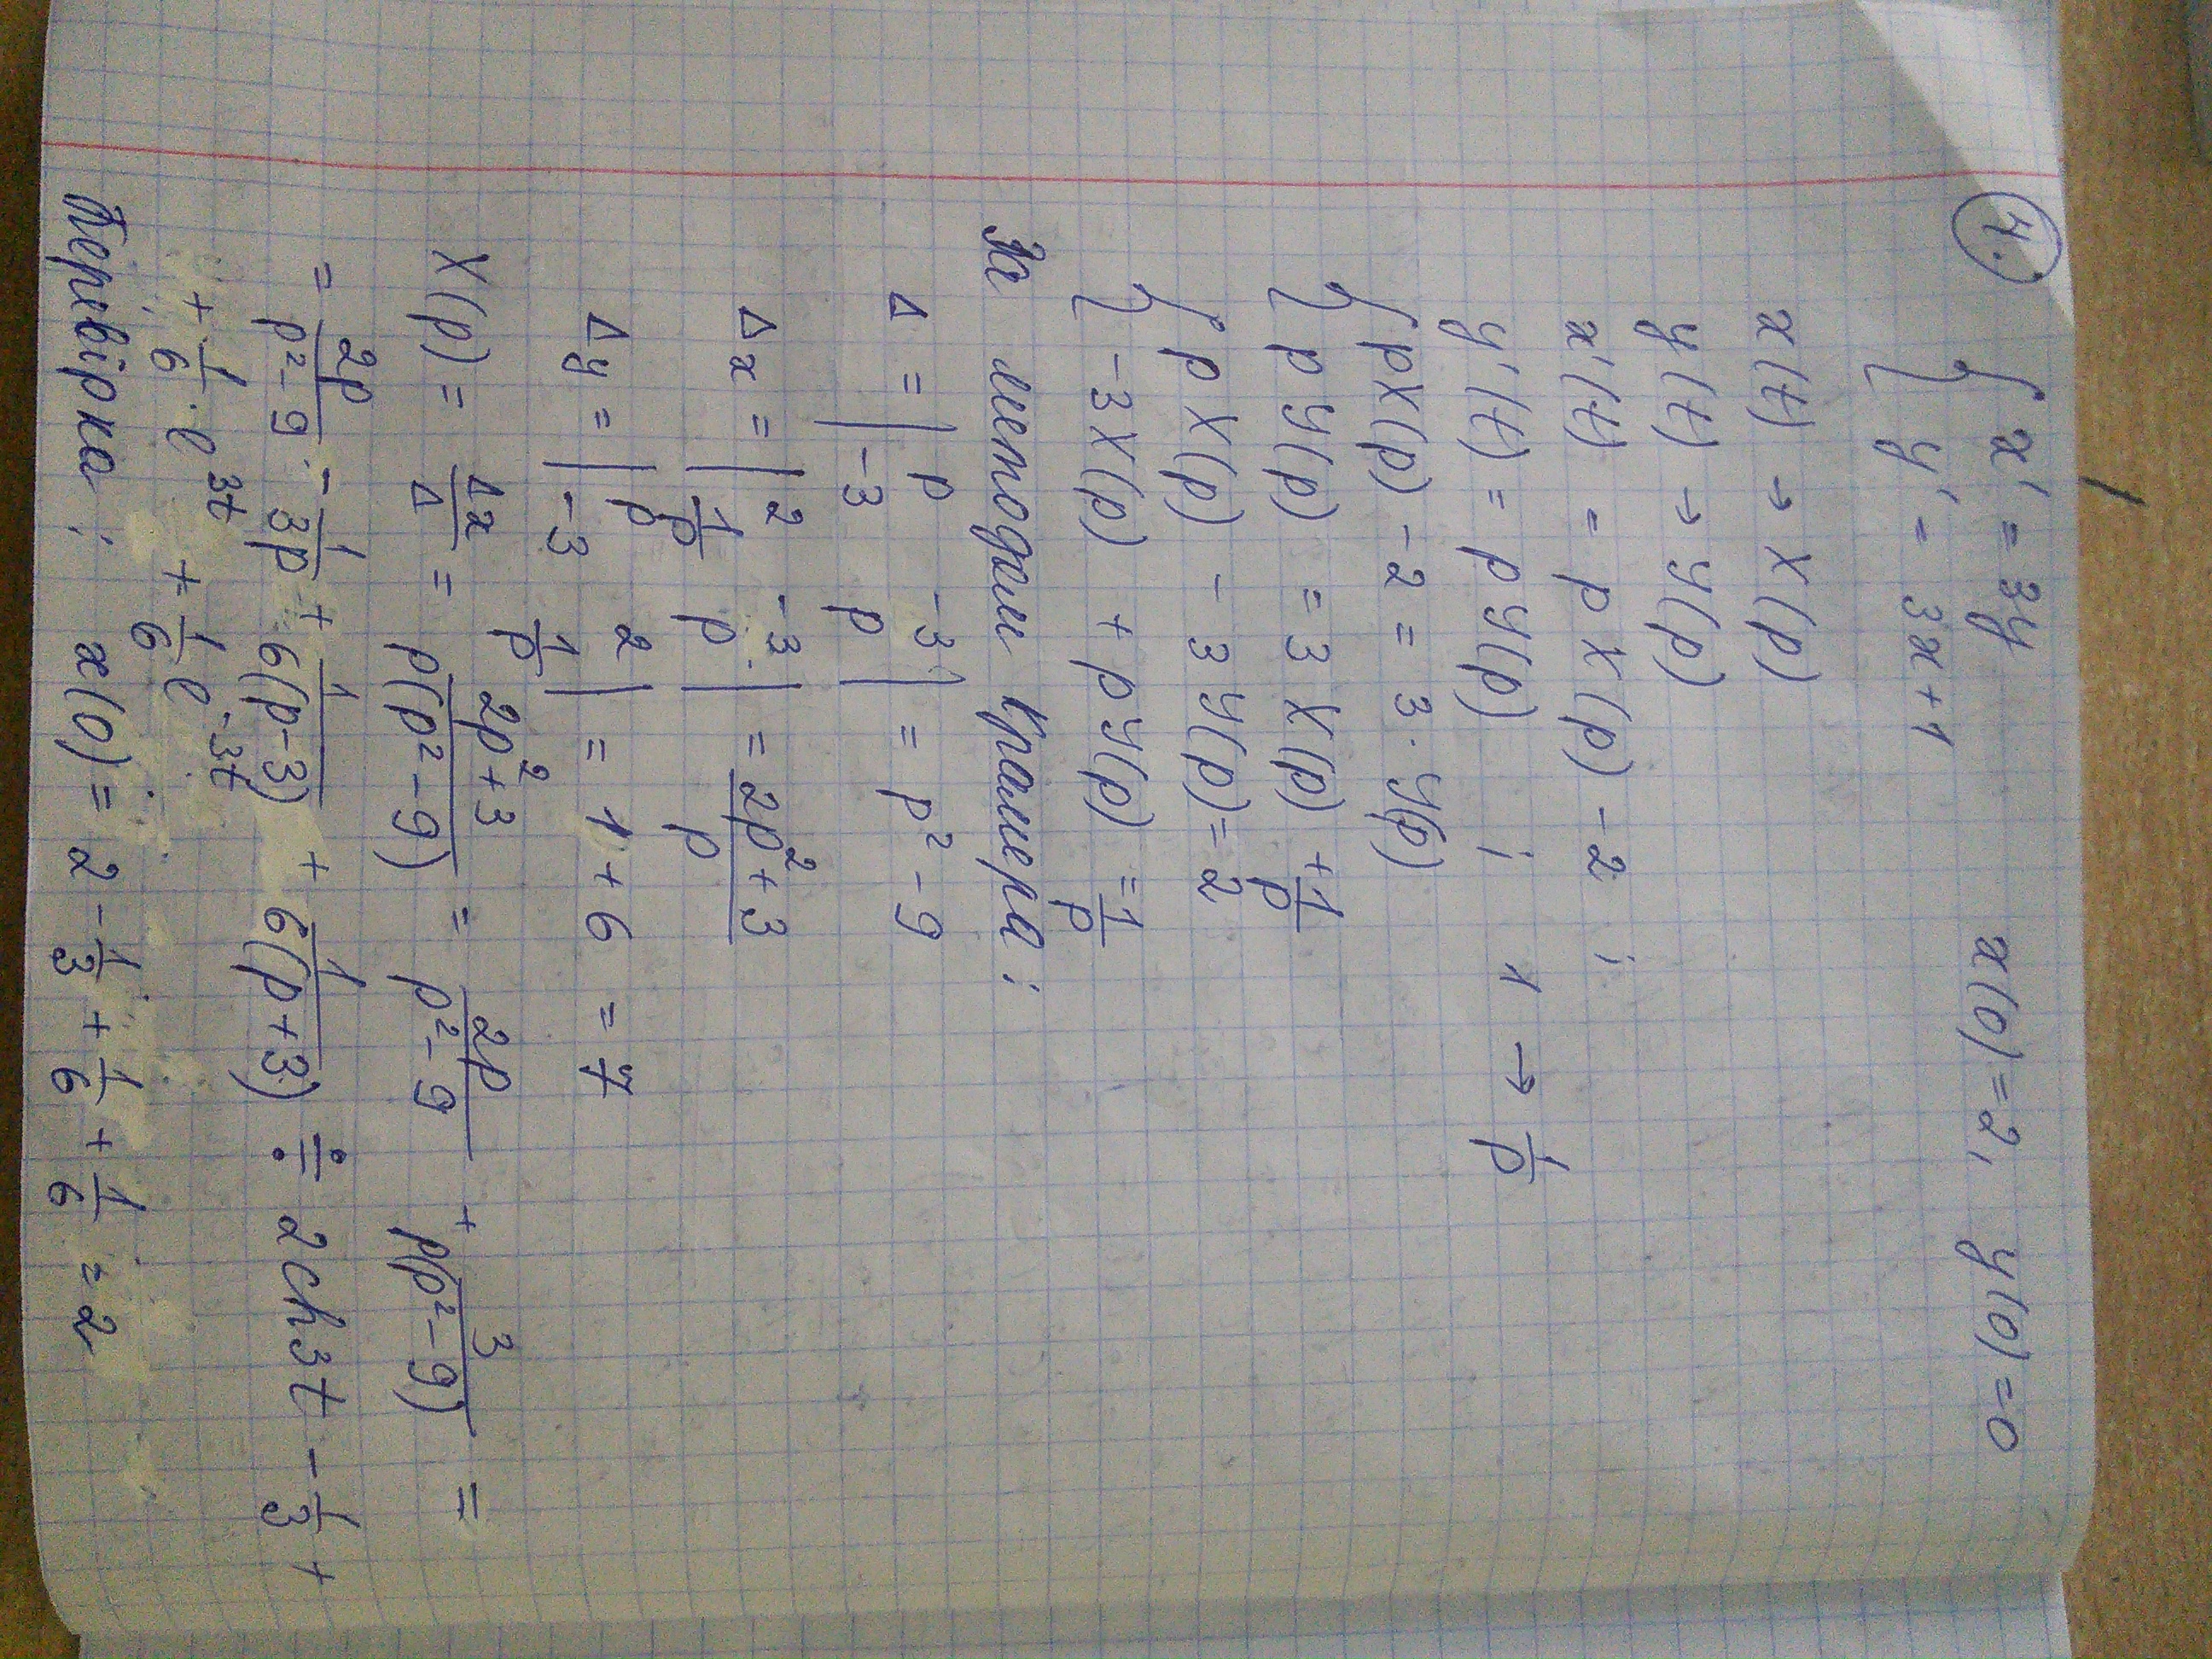 4. { x' = 3y    x(0) = 2, y(0) = 0
{ y' = 3x + 1
x(t) → X(p)
y(t) → Y(p)
x'(t) = p X(p) - 2 ;
y'(t) = p Y(p) ; 1 → 1/p
{ pX(p) - 2 = 3 · Y(p)
{ p Y(p) = 3 X(p) + 1/p
{ p X(p) - 3 Y(p) = 2
{ -3 X(p) + p Y(p) = 1/p
За методом Крамера :
Δ = | p -3 ; -3 p | = p² - 9
Δx = | 2 -3 ; 1/p p | = (2p² + 3)/p
Δy = | p 2 ; -3 1/p | = 1 + 6 = 7
X(p) = Δx/Δ = (2p² + 3)/(p(p² - 9)) = 2p/(p² - 9) + 3/(p(p² - 9)) =
= 2p/(p² - 9) - 1/(3p) + 1/(6(p - 3)) + 1/(6(p + 3)) ÷ 2ch3t - 1/3 +
+ 1/6 · e^(3t) + 1/6 e^(-3t)
Перевірка : x(0) = 2 - 1/3 + 1/6 + 1/6 = 2